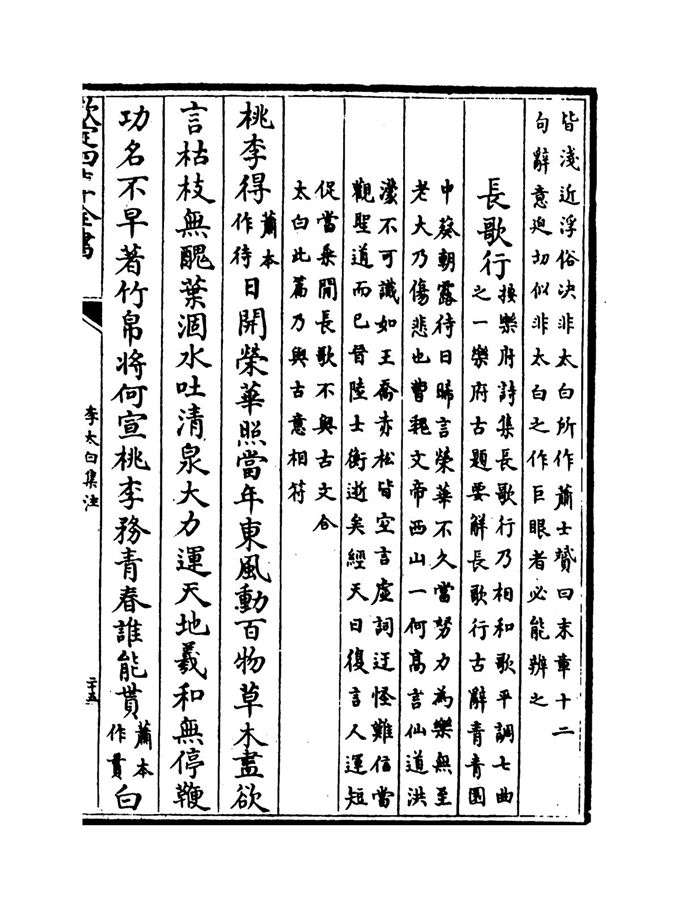 皆淺近浮俗決非太白所作蕭士贇曰末章十二
句辭意迫切似非太白之作巨眼者必能辨之
長歌行
按樂府詩集長歌行乃相和歌平調七曲
之一樂府古題要解長歌行古辭青青園
中葵朝露待日晞言榮華不久當努力為樂無至
老大乃傷悲也曹魏文帝西山一何高言仙道洪
濛不可識如王喬赤松皆空言虛詞迂怪難信當
觀聖道而已晉陸士衡逝矣經天日復言人運短
促當乗閒長歌不與古文合
太白此篇乃與古意相符
桃李得
蕭本
作待
日開榮華照當年東風動百物草木盡欲
言枯枝無醜葉涸水吐清泉大力運天地羲和無停鞭
功名不早著竹帛將何宣桃李務青春誰能貫
蕭本
作貰
白
欽定四庫全書
李太白集注
二十五